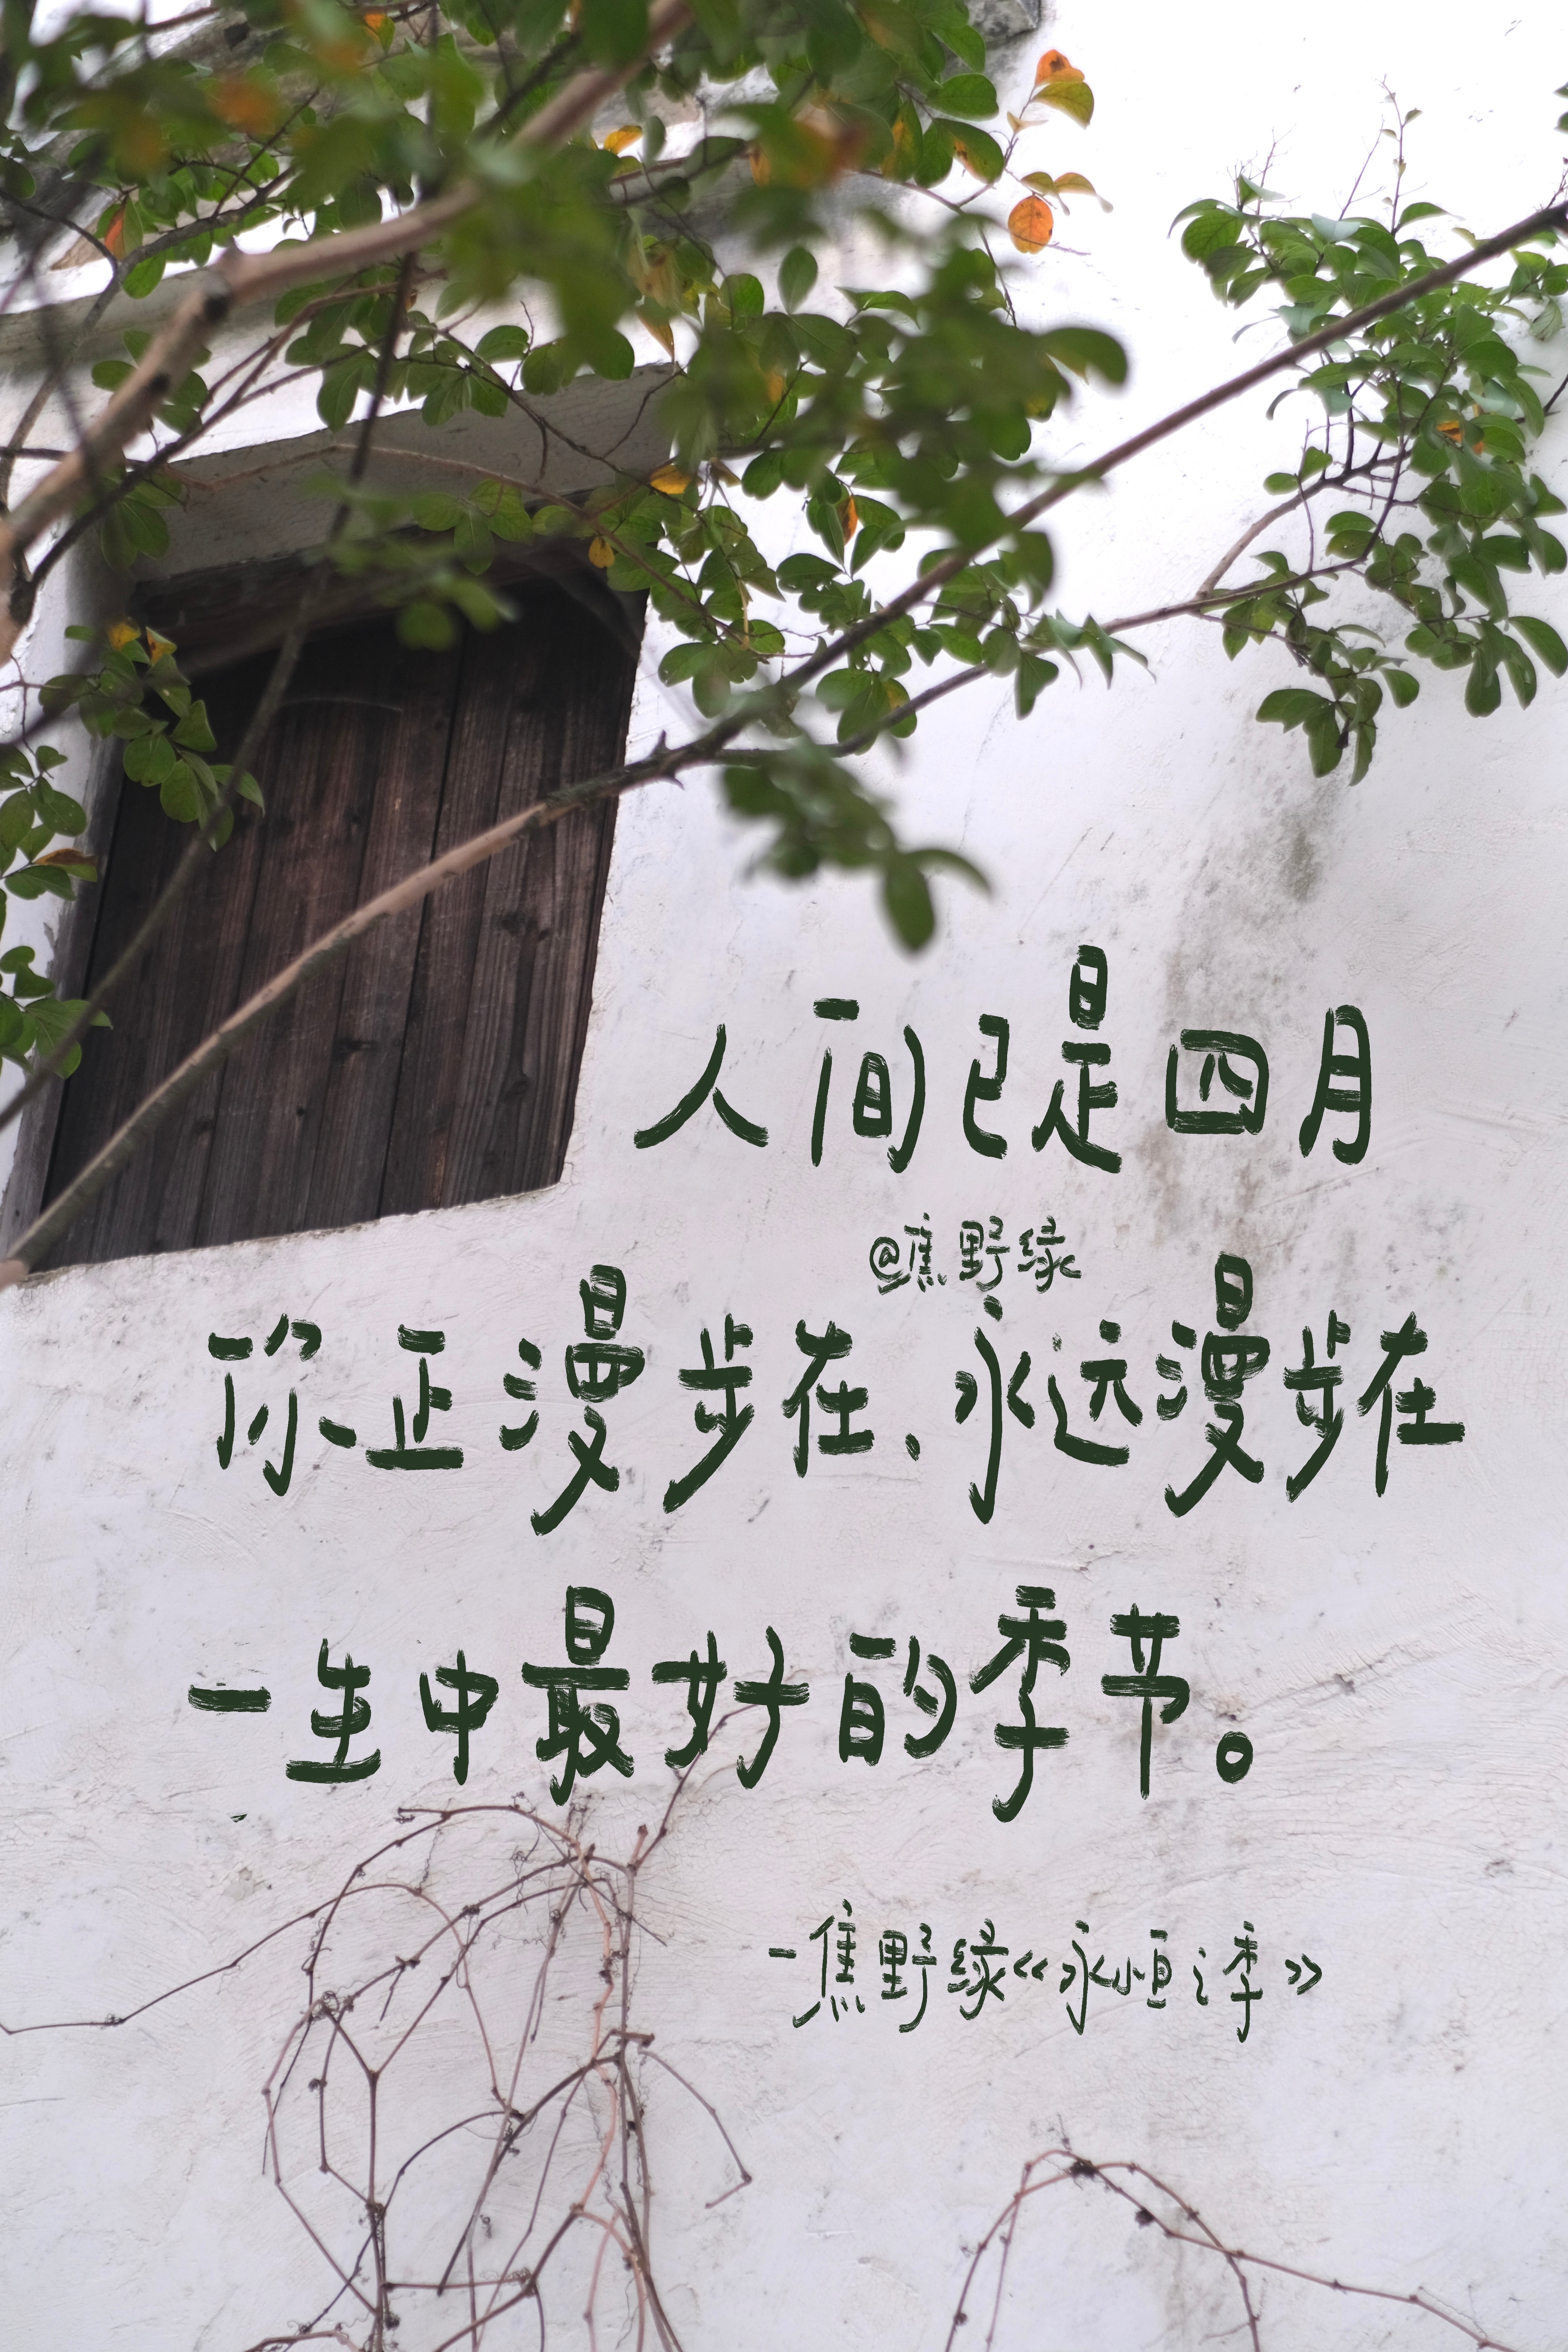 人间已是四月
@焦野绿
你正漫步在、永远漫步在
一生中最好的季节。
-焦野绿《永恒之季》